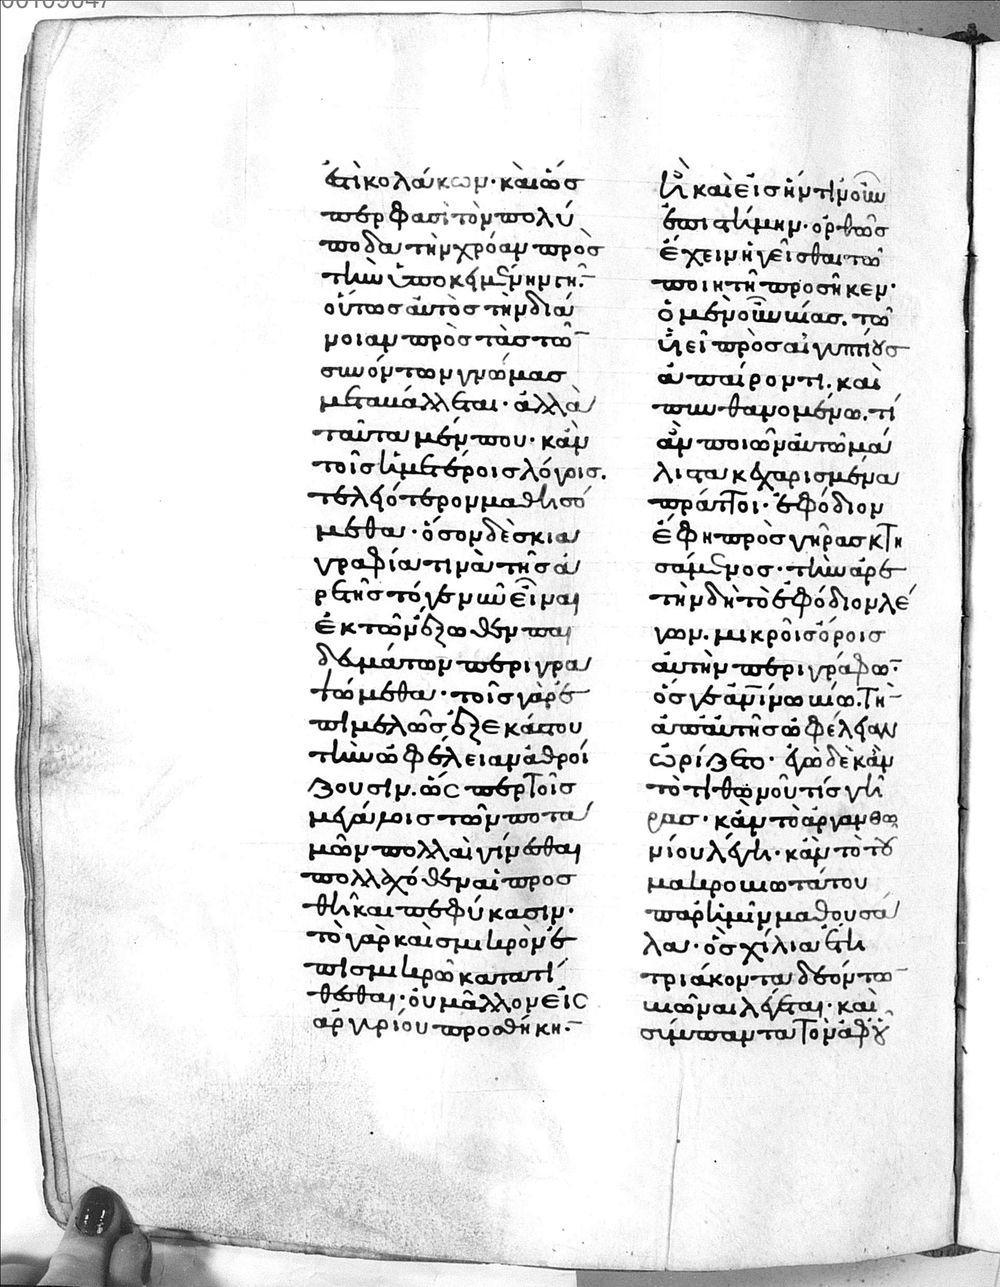 ἐπὶ κολάκων· καὶ ὥσ
περ φασὶ τὸν πολύ
ποδα τὴν χρόαν πρὸς
τὴν ὑποκειμένην γῆν·
οὕτως αὐτὸς τὴν διά
νοιαν πρὸς τὰς τῶν
συνόντων γνώμας
μεταβάλλεται· ἀλλὰ
ταῦτα μέν που· κἀν
τοῖς ἡμετέροις λόγοις.
τελεώτερον μαθησό
μεθα· ὅσον δὲ σκια
γραφία τινὰ τῆς ἀ
ρετῆς τό γε νῦν εἶναι
ἐκ τῶν ἔξωθεν παι
δευμάτων περιγρα
ψώμεθα· τοῖς γὰρ ἐ
πιμελῶς ἐξ ἑκάστου
τὴν ὠφέλειαν ἀθροί
ζουσιν. ὥσπερ τοῖς
μεγάλοις τῶν ποτα
μῶν πολλαὶ γίνεσθαι
πολλαχόθεν αἱ προσ
θῆκαι πεφύκασιν·
τὸ γὰρ καὶ σμικρὸν ἐ
πὶ σμικρῷ κατατί
θεσθαι· οὐ μᾶλλον εἰς
ἀργυρίου προσθήκην·
ἢ καὶ εἰς ἡντινοῦν
ἐπιστήμην· ὀρθῶς
ἔχειν ἡγεῖσθαι τῷ
ποιητῇ προσῆκεν·
ὁ μὲν οὖν βίας. τῷ
υἱεῖ πρὸς αἰγυπτίους
ἀπαίροντι. καὶ
πυνθανομένῳ. τί
ἂν ποιῶν αὐτῷ μά
λιστα κεχαρισμένα
πράττοι· ἐφόδιον
ἔφη πρὸς γῆρας κτη
σάμενος· τὴν ἀρε
τὴν δὴ τὸ ἐφόδιον λέ
γων. μικροῖς ὅροις
αὐτὴν περιγράφων·
ὅς γε ἀνθρωπίνῳ βίῳ. τὴν
ἀπ' αὐτῆς ὠφέλειαν
ὡρίζετο· ἐγὼ δὲ κἂν
τὸ τιθωνοῦ τίς γῆ
ρας· κἂν τὸ ἀργανθω
νίου λέγῃ· κἂν τὸ τοῦ
μακροβιωτάτου
παρ' ἡμῖν μαθουσά
λα· ὃς χίλια ἔτη
τριάκοντα δεόντων
βιῶναι λέγεται· καὶ
σύμπαντα τὸν ἀφ' οὗ